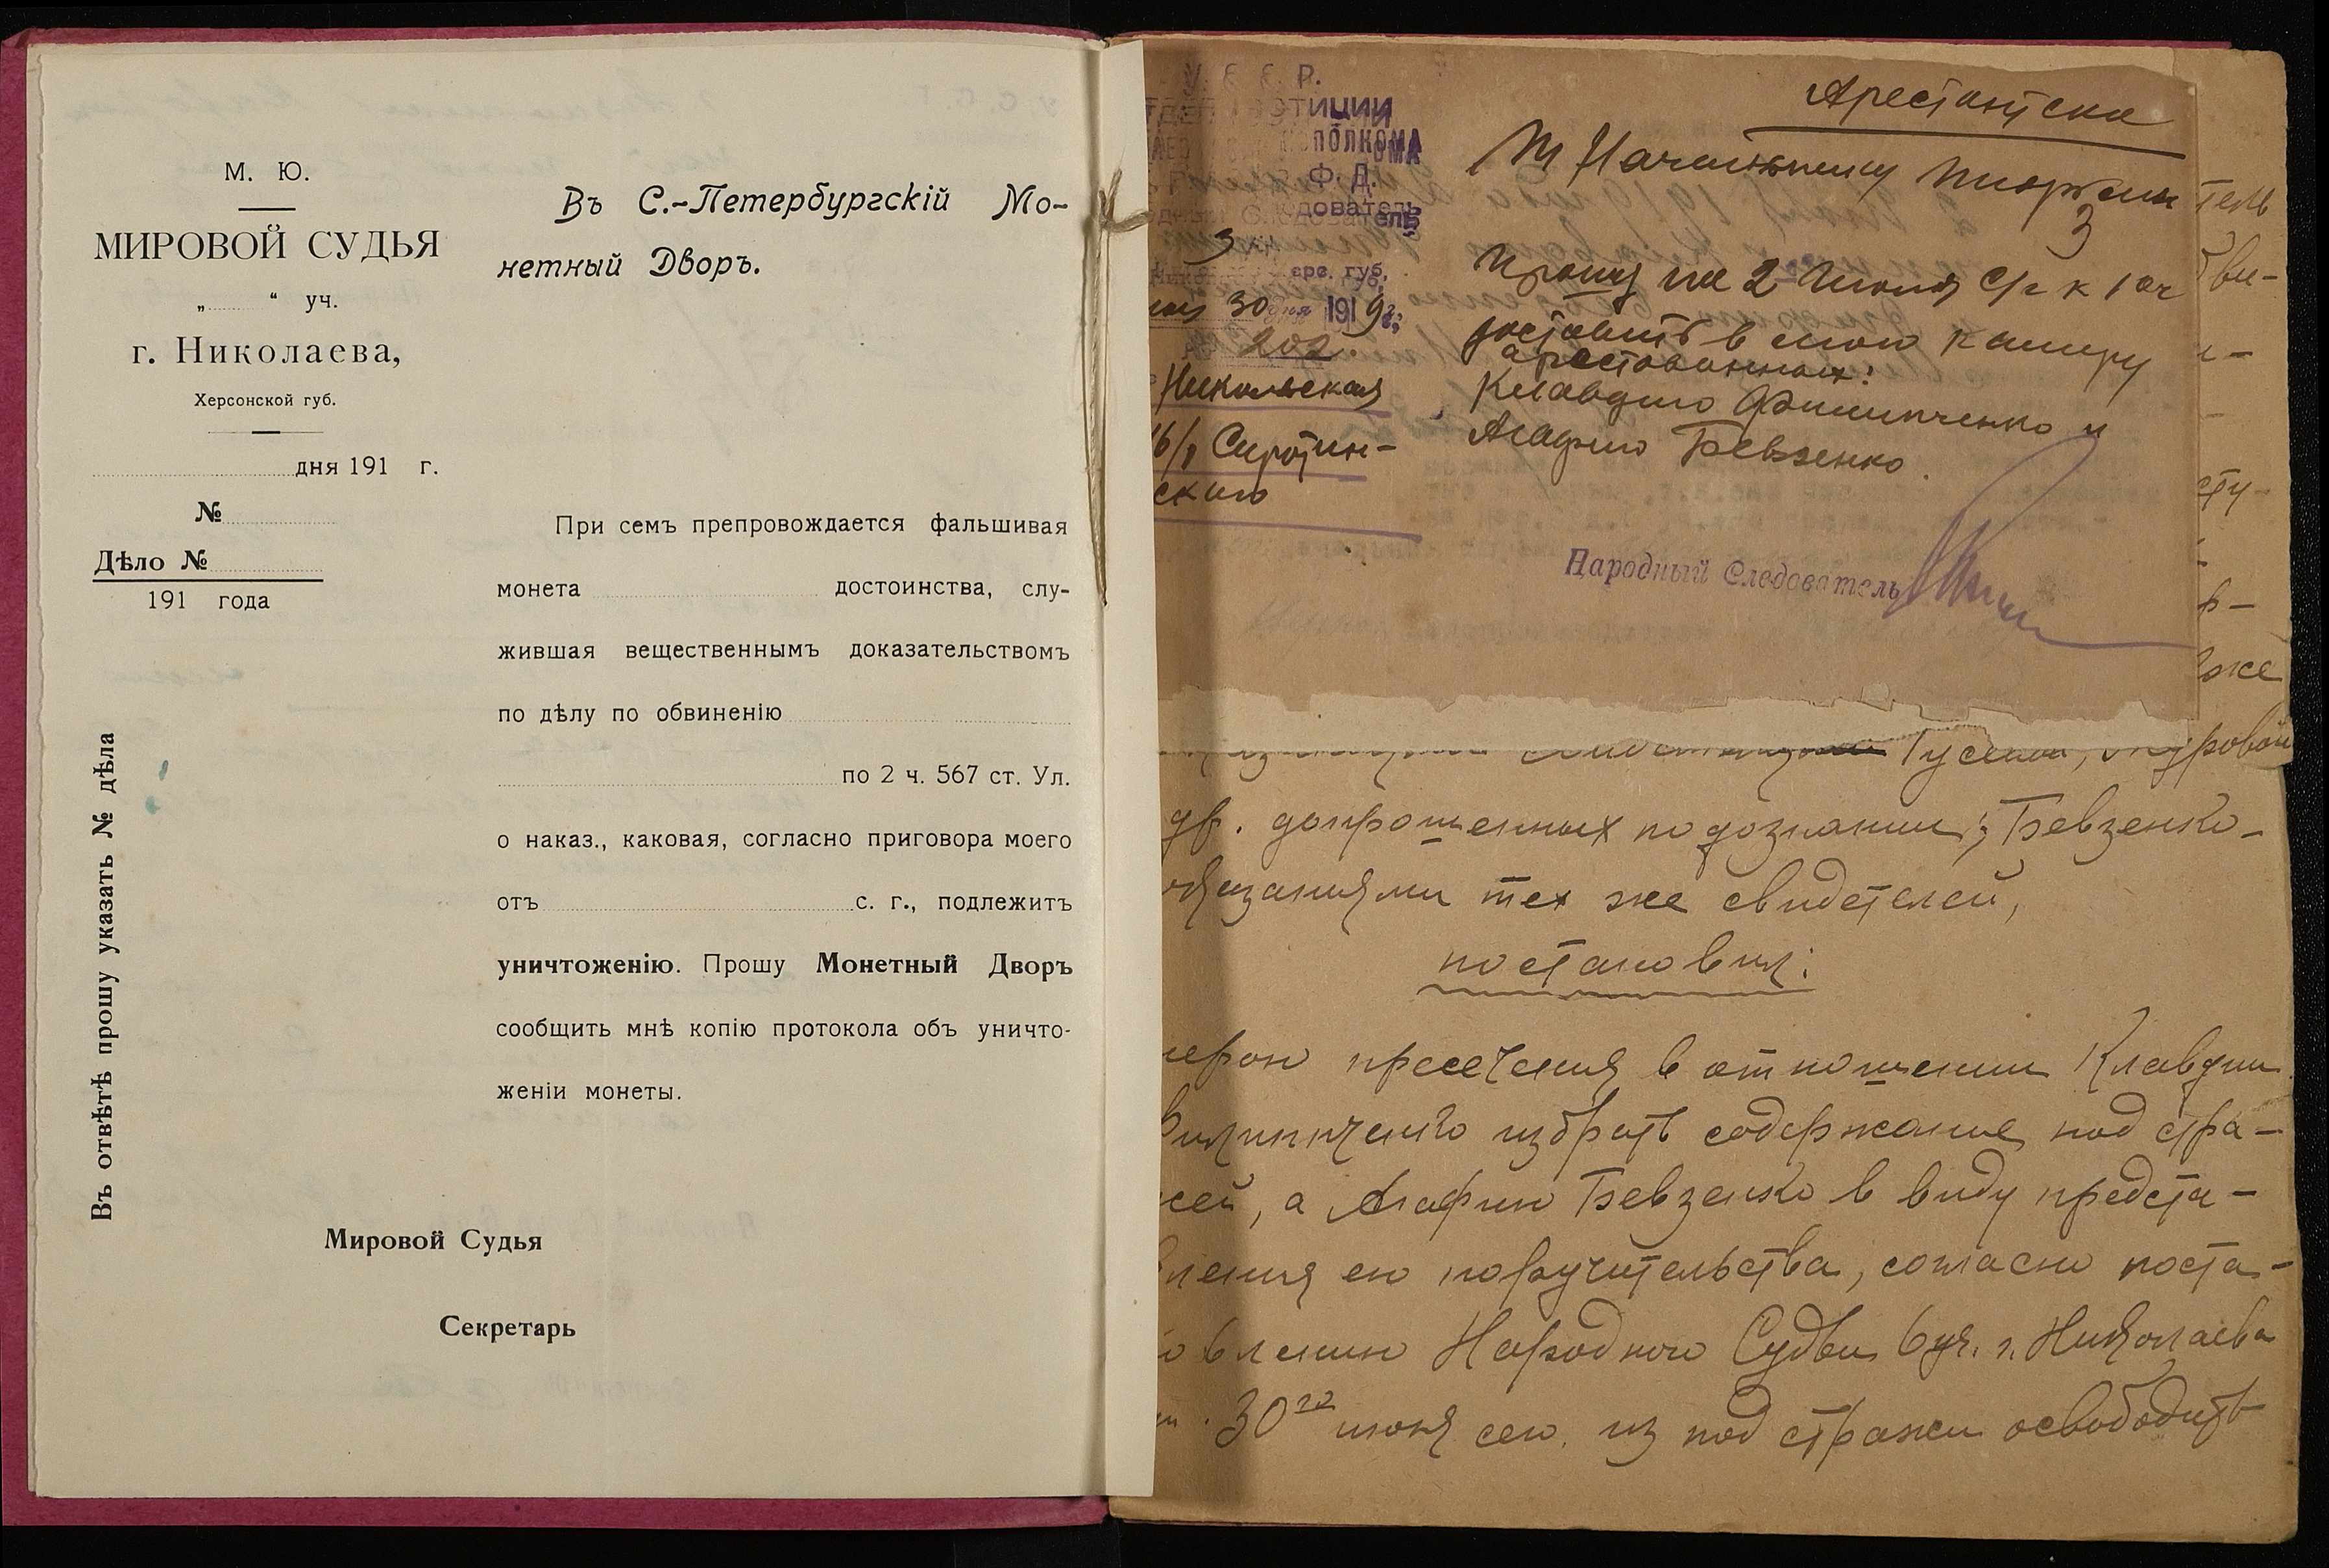 М. Ю.
МИРОВОЙ СУДЬЯ
„ “ уч.
г. Николаева,
Херсонской губ.
дня 191 г.
№
Дѣло №
191 года
Въ отвѣтѣ прошу указать № дѣла
Въ С.-Петербургскій Мо-
нетный Дворъ.
При семъ препровождается фальшивая
монета достоинства, слу-
жившая вещественнымъ доказательствомъ
по дѣлу по обвиненію
по 2 ч. 567 ст. Ул.
о наказ., каковая, согласно приговора моего
отъ с. г., подлежитъ
уничтоженію. Прошу Монетный Дворъ
сообщить мнѣ копію протокола объ уничто-
женіи монеты.
Мировой Судья
Секретарь
С. Р.
ЮСТИЦИИ
ИСПОЛКОМА
Ф. Д.
Следователь
3
губ.
30 дня 1919 г.
202.
Никольская
Сиротин-
ского
Арестантская
Т Начальнику тюрьмы
3
Прошу на 2 Июля с/г к 1 ч
доставить в мою камеру
арестованных:
Клавдию Филипченко и
Агафию Бевзенко.
Народный Следователь
тель
ви-
сту-
же
Гусевой,
др. допрошенных по дознанию; Бевзенко-
тех же свидетелей,
постановил:
мерою пресечения в отношении Клавдии
Филипченко избрать содержание под стра-
жей, а Агафию Бевзенко в виду предста-
вления ею поручительства, согласно поста-
новлению Народного Судьи 6 уч. г. Николаева
30го июня сего из под стражи освободить